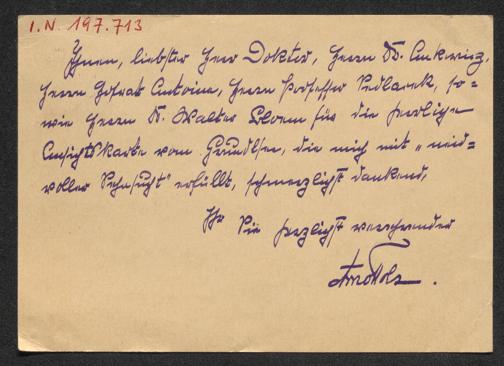 I.N. 197.713
Ihnen, liebster Herr Doktor, Herrn Dr. Ankwicz,
Herrn Hofrat Antoine, Herrn Professor Sedlaczek, so=
wie Herrn Dr. Walter für die herrliche
Ansichtskarte vom Grundlsee, die mich mit „neid=
voller Sehnsucht" erfüllt, schmerzlichst dankend,
Ihr Sie herzlichst verehrender
Arno Holz.